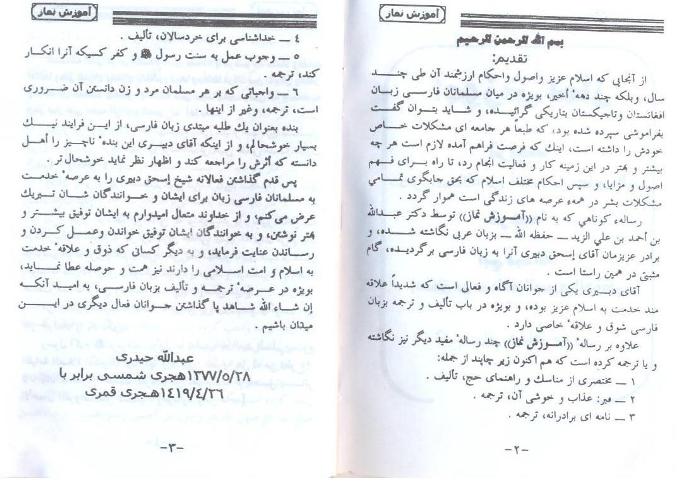 آموزش نماز
بسم الله الرحمن الرحيم
تقديم:
از آنجايى كه اسلام عزيز واصول واحكام ارزشمند آن طى چند
سال، وبلكه چند دههٔ أخير، بويژه در ميان مسلمانان فارسى زبان
افغانستان وتاجيكستان بتاريكى گرائيده، و شايد بتوان گفت
بفراموشى سپرده شده بود، كه طبعاً هر جامعه اى مشكلات خاص
خودش را داشته است، اينك كه فرصت فراهم آمده لازم است هر چه
بيشتر و بهتر در اين زمينه كار و فعاليت انجام رد، تا راه براى فهم
اصول و مزايا، و سپس احكام مختلف اسلام كه بحق جابگوى تمامي
مشكلات بشر در همهٔ عرصه هاى زندگى است هموار گردد.
رسالهء كوتاهي كه به نام ((آمـوزش نماز)) توسط دكتر عبدالله
بن أحمد بن علي الزيد ــ حفظه الله ــ بزبان عربى نگاشته شده، و
برادر عزيزمان آقاى إسحق دبيرى آنرا به زبان فارسى برگرديده، گام
مثبتى در همين راستا است.
آقاى دبيرى يكى از جوانان آگاه و فعالى است كه شديداً علاقه
مند خدمت به اسلام عزيز بوده، و بويژه در باب تأليف و ترجمه بزبان
فارسى شوق و علاقهٔ خاصى دارد.
علاوه بر رسالهٔ ((آمـوزش نماز)) چند رسالهٔ مفيد ديگر نيز نگاشته
و يا ترجمه كرده است كه هم اكنون زير چاپند از جمله:
١ ــ مختصرى از مناسك و راهنماى حج، تأليف.
٢ ــ قبر: عذاب و خوشى آن، ترجمه.
٣ ــ نامه اى برادرانه، ترجمه.
-٢-
آموزش نماز
٤ ــ خداشناسى براى خردسالان، تأليف.
٥ ــ وجوب عمل به سنت رسول ﷺ و كفر كسيكه آنرا انكار
كند، ترجمه.
٦ ــ واجباتى كه بر هر مسلمان مرد و زن دانستن آن ضرورى
است، ترجمه، وغير از اينها.
بنده بعنوان يك طلبه مبتدى زبان فارسى، از اين فرايند نيك
بسيار خوشحالم، و از اينكه آقاى دبيرى اين بندهٔ ناچيز را أهل
دانسته كه أثرش را مراجعه كند و اظهار نظر نمايد خوشحال تر.
پس قدم گذاشتن فعالانهٔ شيخ إسحق دبيرى را به عرصهٔ خدمت
به مسلمانان فارسى زبان براى ايشان و خوانندگان شان تبريك
عرض مى كنم، و از خداوند متعال اميدوارم به ايشان توفيق بيشتر و
بهتر نوشتن، و به خوانندگان ايشان توفيق خواندن وعمل كردن و
رساندن عنايت فرمايد، و به ديگر كسانى كه ذوق و علاقهٔ خدمت
به اسلام و امت اسلامى را دارند نيز همت و حوصله عطا نمايد،
بويژه در عرصهٔ ترجمه و تأليف بزبان فارسى، به اميد آنكه
إن شاء الله شاهد پا گذاشتن جوانان فعال ديگرى در اين
ميدان باشيم.
عبدالله حيدرى
١٣٧٧/٥/٢٨هجرى شمسى برابر با
١٤١٩/٤/٢٦هجرى قمرى
-٣-